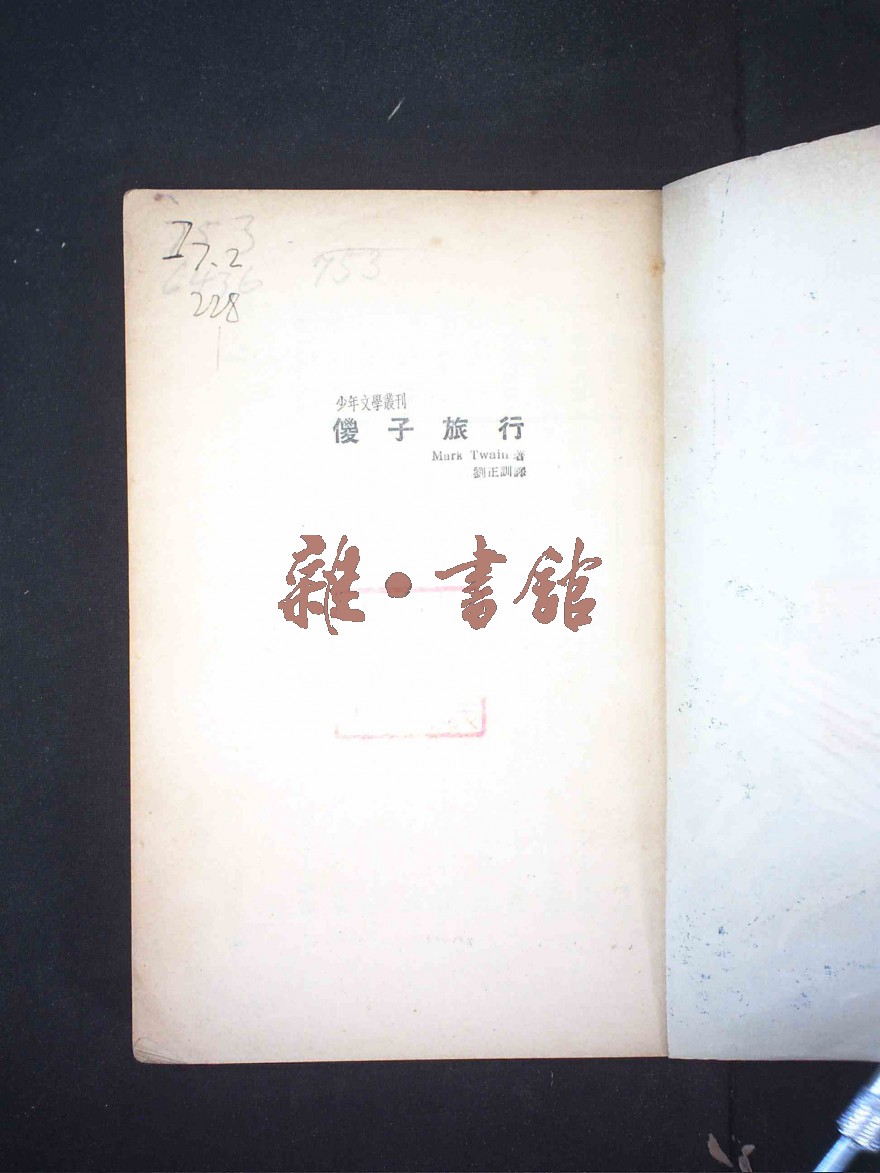 I7.2
228
753
少年文學叢刊
傻子旅行
Mark Twain 著
劉正訓譯
雜·書館